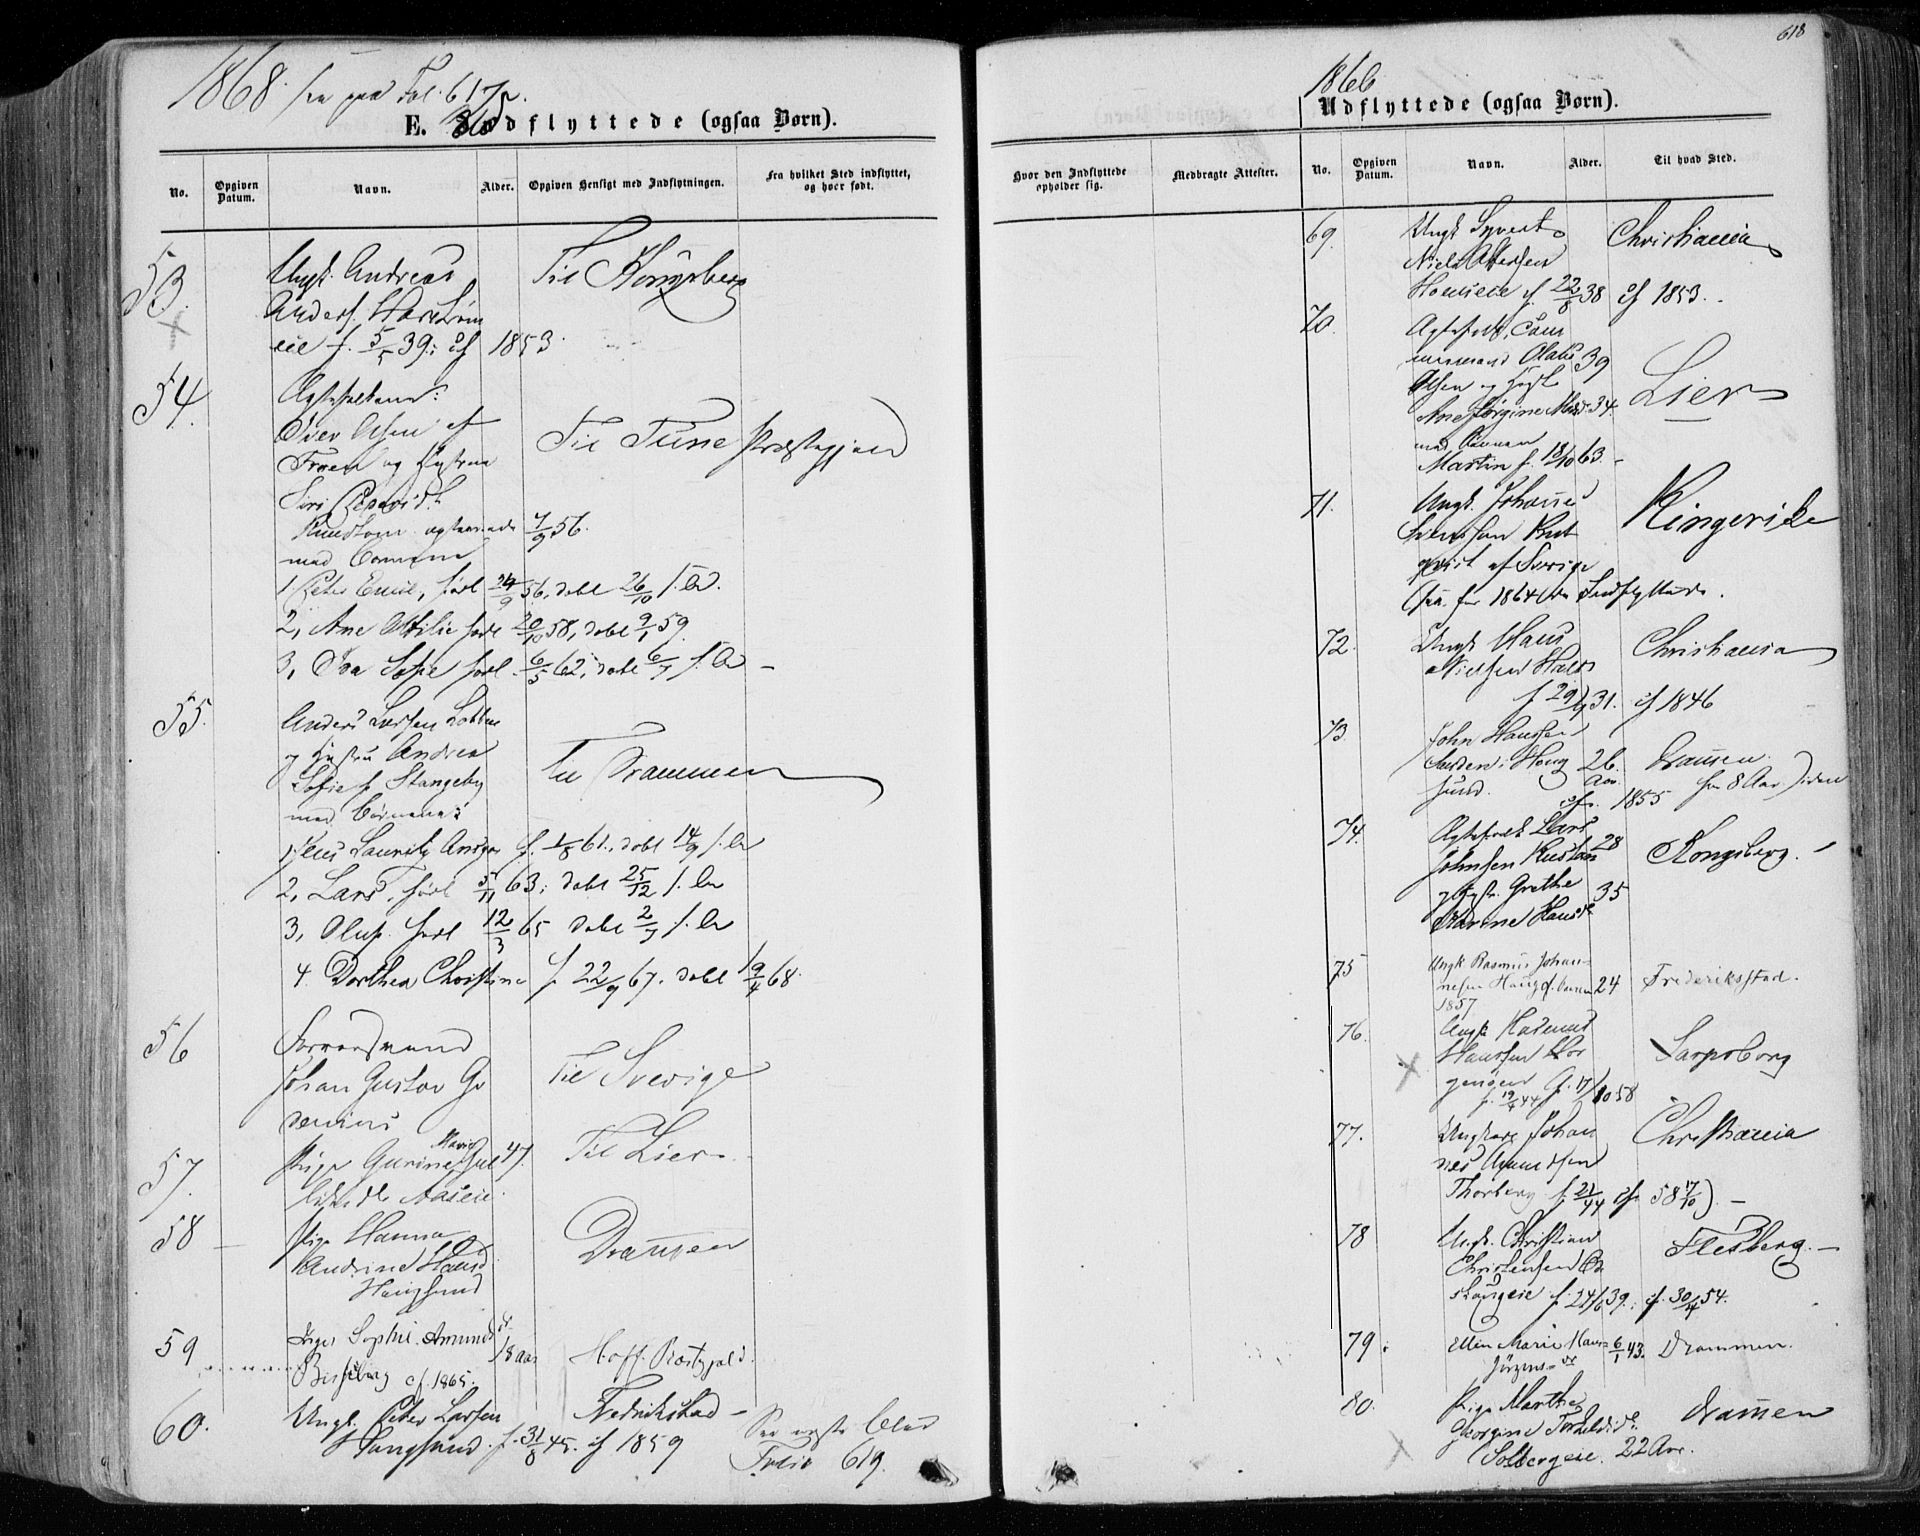 1868. fra paa Fol. 617.
E. Udflyttede (ogsaa Børn).
No.
Opgiven Datum.
Navn.
Alder.
Opgiven Hensigt med Indflytningen.
Fra hvilket Sted indflyttet, og hvor født.
53.
Ungk. Andreas
Til Kongsberg
Anders.
eie f. 5/5 39; cf 1853.
54.
Ægtefolkene:
Iver Olsen af
Til Tune Præstegjeld
Froen og Hustrue
Siri
med Børnene
7/9 56.
1, Peter Emil, født 24/9 56, døbt 26/10 s. A.
2, Ane Otilie født 20/10 58, døbt 9/1 59.
3, Ida Sofie født 6/5 62, døbt 6/7 s. A
55.
Anders Larsen
og Hustru Andrea
Til Drammen
Sofie f. Stangeby
med Børnene:
1, Jens Lauritz Ansgar f. 1/8 61, døbt 14/9 s. A
2, Lars, født 5/11 63; døbt 25/12 s. A
3, Oluf. født 12/3 65 døbt 2/7 s. A
4. Dorthea Christine f 22/9 67. døbt 19/4 68.
56
Forvandsmand
Johan Gustav
Til Sverige
57.
Pige Gurine Marie
47.
Til Lier
Aaseie.
58
Pige Hanna
Andrine Hansd
Drammen
Haugsund
59
Pige Sophie Amundsd.
18 aar
Hoff Præstgjeld.
cf. 1865.
60.
Ungk. Peter Larsen
Fredrikstad
Haugsund. f. 31/8 45. cf 1859
See næste Blad
Folio 619.
618
1866
Udflyttede (ogsaa Børn).
Hvor den Indflyttede opholder sig.
Medbragte Attester.
No.
Opgiven Datum.
Navn.
Alder.
Til hvad Sted.
69.
Ungk Syvert
Christiania
Niels
f. 22/8 38 cf 1853.
70.
Ægtefolk,
Olaus 39
Olsen og Hust
Lier
Ane Jørgine 34.
med Sønnen
Martin f. 18/10 63.
71.
Ungk. Johannes
Ringerike
qvist af Sverige
(see for 1864 de Indflyttede.
72.
Ungk Hans
Christiania
Nielsen Hals
f 29/9 31. cf 1846
73.
John Hanssen
i Houg 26. Drammen.
sund. Aar. for 8 Aar siden
cf. 1855
74.
Ægtefolk Lars
Johnsen 28
Kongsberg.
og Hust. Grethe
35
Karine Hansd
75
Ungk. Rasmus Johan-
nesen Haug 24 Frederiksstad.
1857
76.
Ungk
Hanssen
Sarpsborg
f. 19/4 44 cf. 17/10 58
77.
Ungkarl Johan
Christiania
nes Amundsen
Thorberg f. 21/ 44 cf. 58 17/10).
78
Ungk. Christian
Flesberg.
Christensen
f. 24/6 39; cf. 30/4 54.
79
Ellen Marie Hans 6/1 43. Drammen.
80.
Pige Marthe
Drammen
Georgine
Solbergeie. 22 Aar.